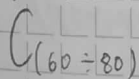 C(60÷80)